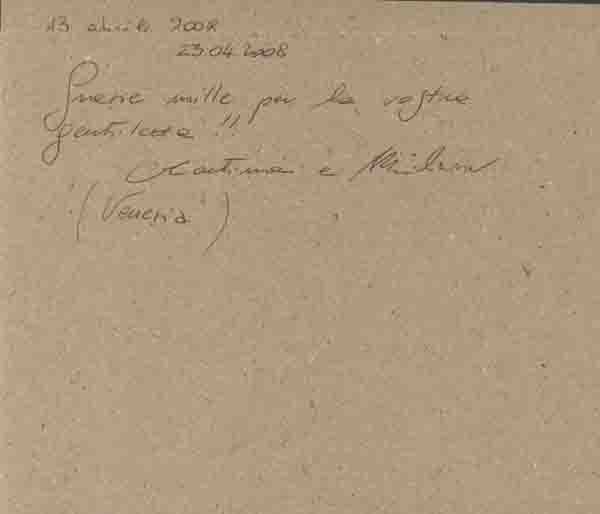 13 aprile 2008
23.04.2008
Grazie mille per la vostra
gentilezza!!
Martina e
(Venezia)